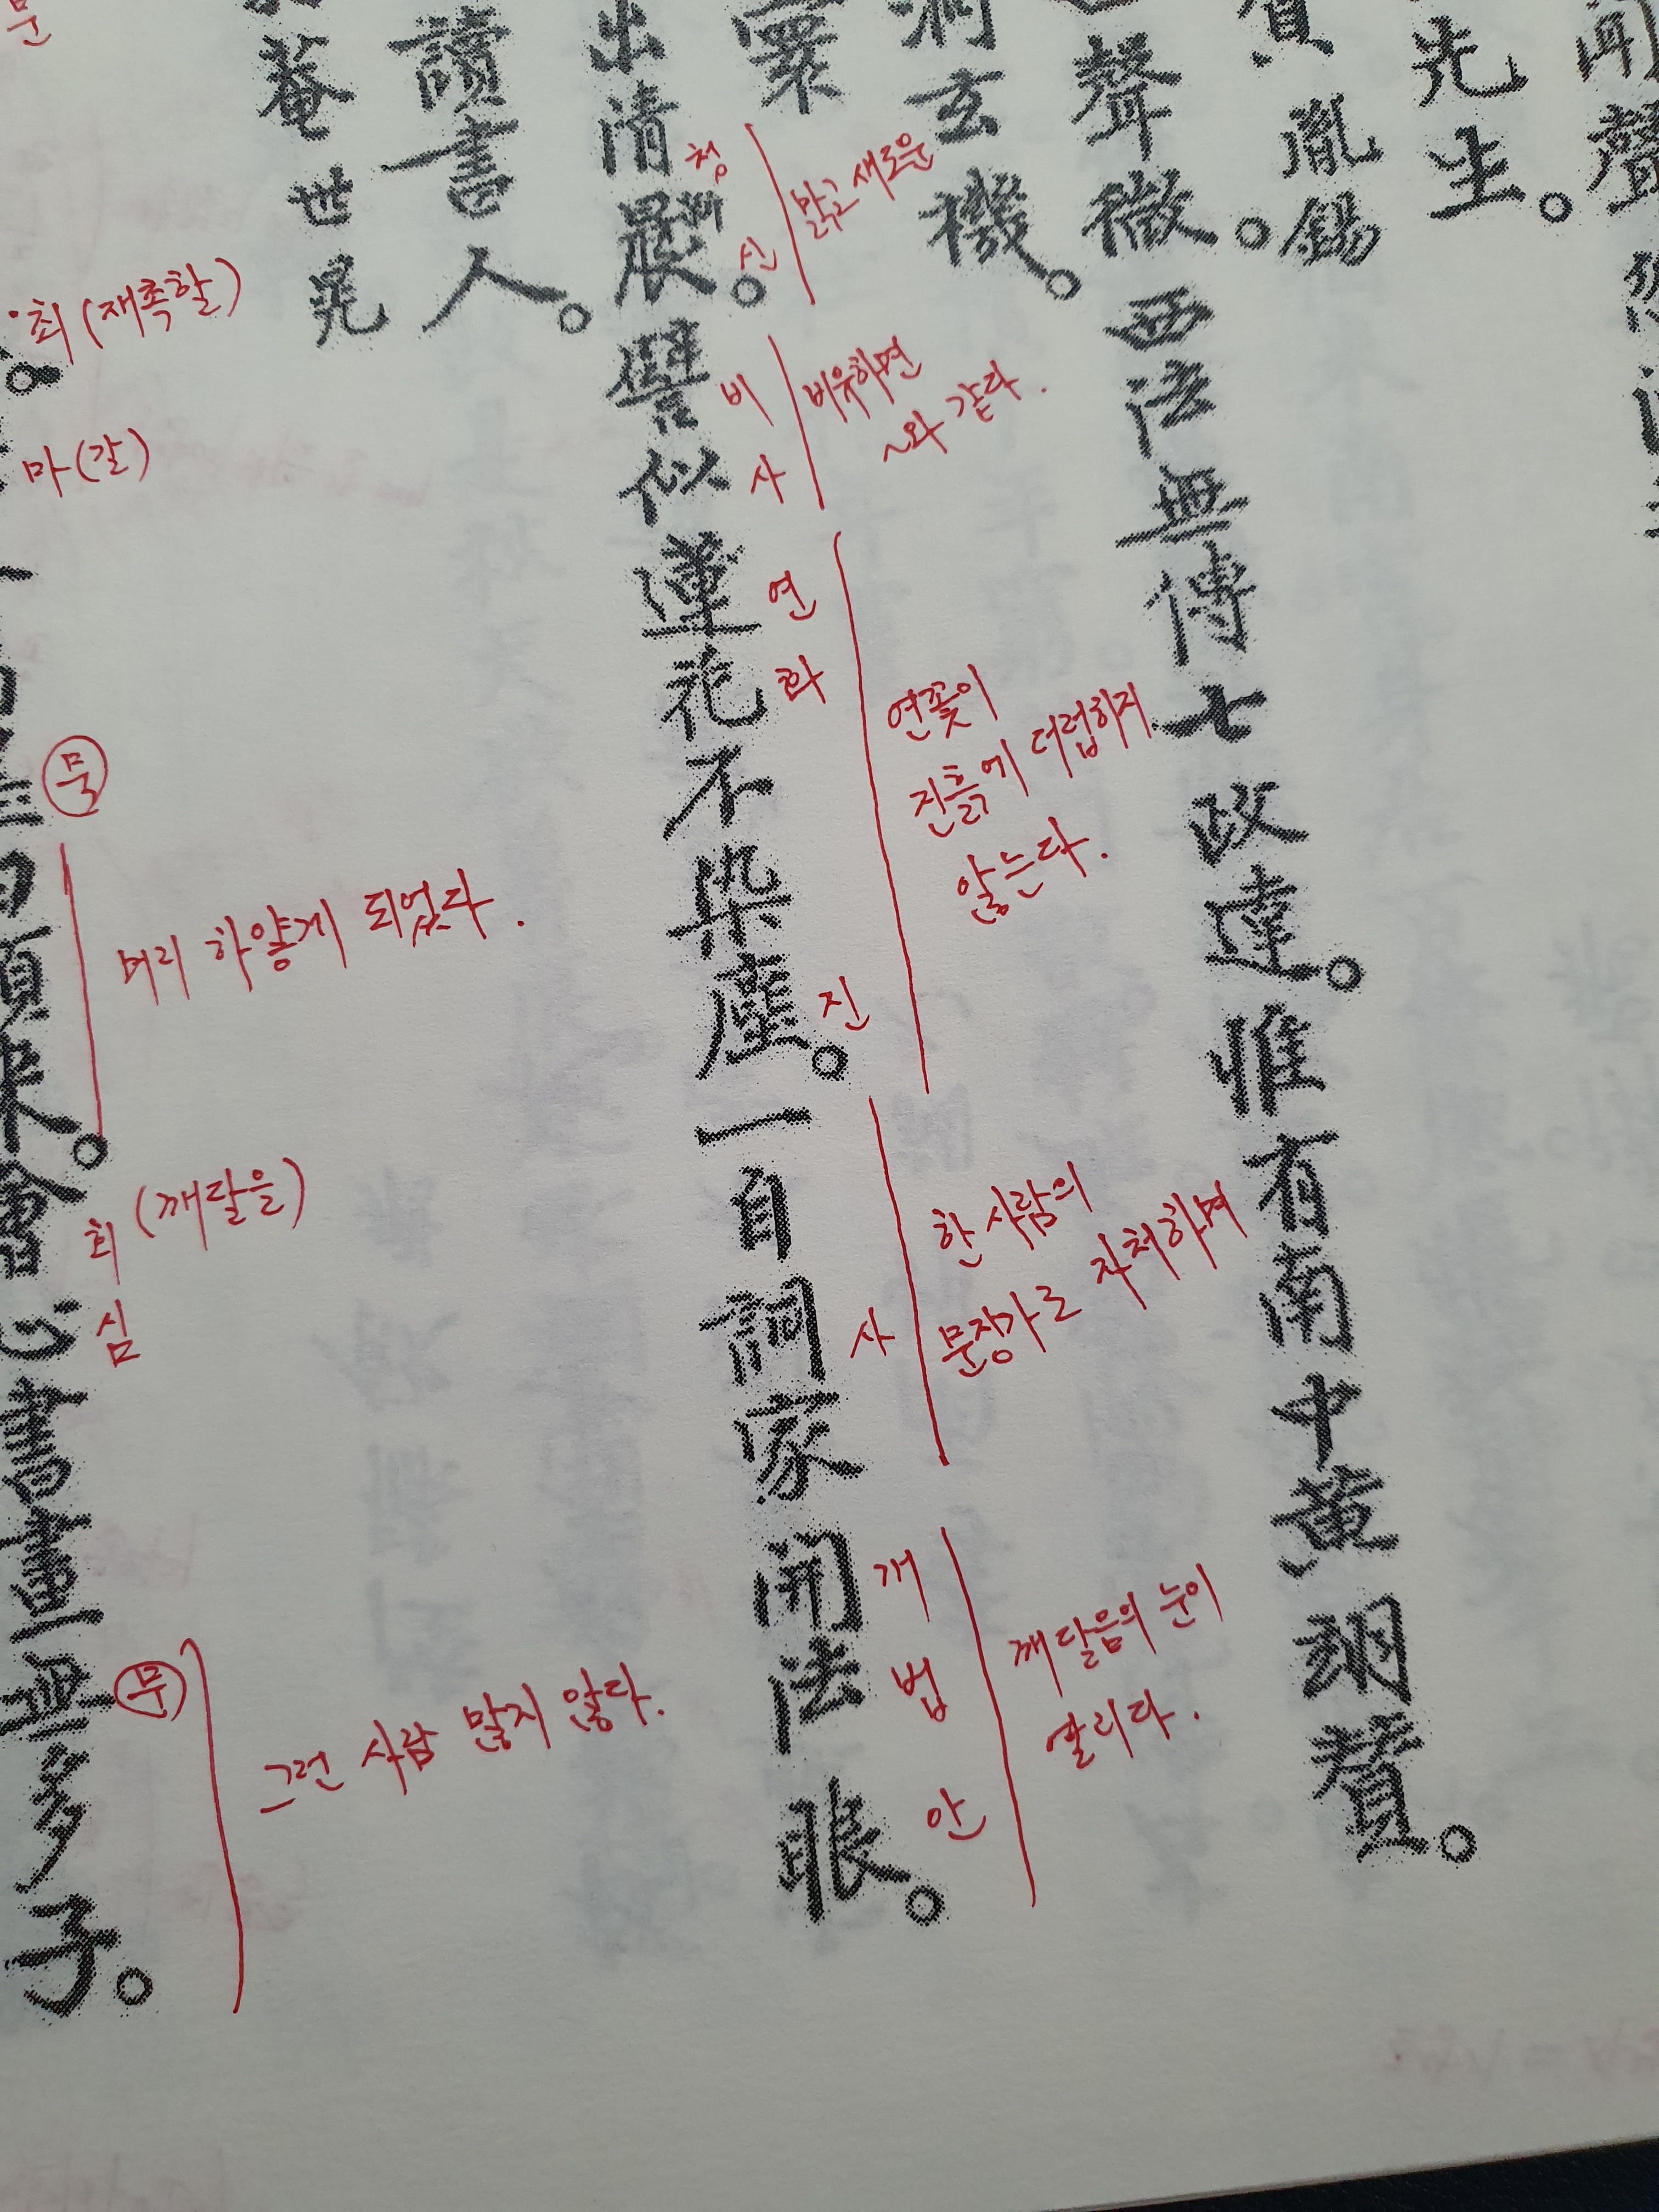 聞聲
先生。
胤錫
聲微。西法無傳七政達。惟有南中黃翊贊。
玄機。
衆
出清晨。譬似蓮花不染塵。一自詞家開法眼。
청
신
맑고 새로운
비
사
비유하면
~와 같다.
연
화
진
연꽃이
진흙에 더럽히지
않는다.
사
한 사람의
문장가로 자처하며
개
법
안
깨달음의 눈이
열리다.
讀書人。
菴世晃
최 (재촉할)
마 (갈)
묵
머리 하얗게 되었다.
회 (깨달을)
심
頭來。會心書畫無多子。
무
그런 사람 많지 않다.